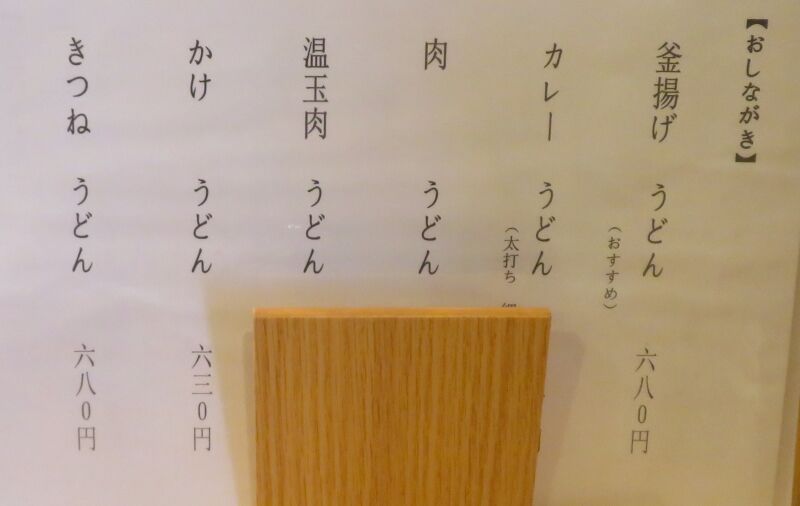 【おしながき】
釜揚げ うどん (おすすめ) 六八0円
カレー うどん (太打ち
肉 うどん
温玉肉 うどん
かけ うどん 六三0円
きつね うどん 六八0円